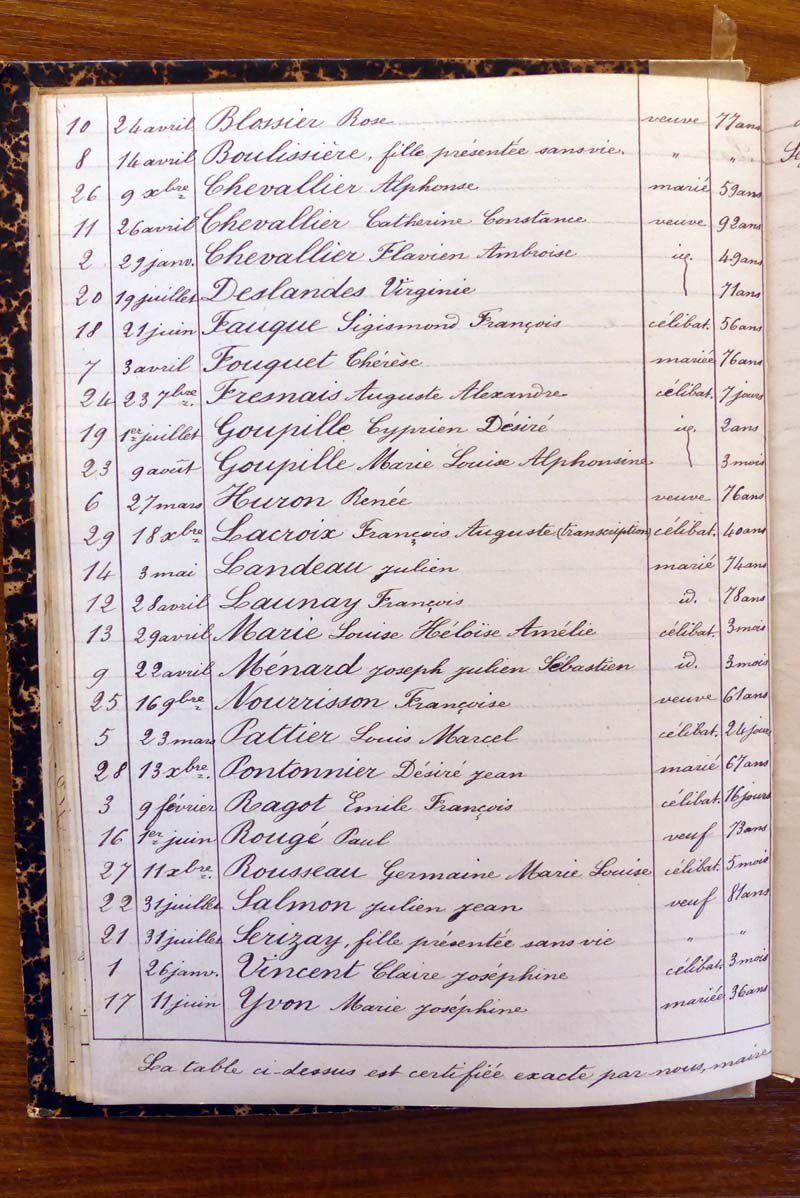 10 24 avril Blossier Rose veuve 77 ans
8 14 avril Boulissière, fille présentée sans vie. " "
26 9 xbre Chevallier Alphonse marié 59 ans
11 26 avril Chevallier Catherine Constance veuve 92 ans
2 29 janv. Chevallier Flavien Ambroise id. 49 ans
20 19 juillet Deslandes Virginie 71 ans
18 21 juin Fauque Sigismond François célibat. 56 ans
7 3 avril Fouquet Thérèse mariée 76 ans
24 23 7bre. Fresnais Auguste Alexandre célibat. 7 jours
19 1er juillet Goupille Cyprien Désiré id. 2 ans
23 9 août Goupille Marie Louise Alphonsine 3 mois
6 27 mars Huron Renée veuve 76 ans
29 18 xbre Lacroix François Auguste (transcription) célibat. 40 ans
14 3 mai Landeau Julien marié 74 ans
12 28 avril Launay François id. 78 ans
13 29 avril Marie Louise Héloïse Amélie célibat. 3 mois
9 22 avril Ménard Joseph Julien Sébastien id. 3 mois
25 16 9bre Nourrisson Françoise veuve 61 ans
5 23 mars Pattier Louis Marcel célibat. 24 jours
28 13 xbre. Pontonnier Désiré Jean marié 67 ans
3 9 février Ragot Emile François célibat. 16 jours
16 1er juin Rougé Paul veuf 73 ans
27 11 xbre. Rousseau Germaine Marie Louise célibat. 5 mois
22 31 juillet Salmon Julien Jean veuf 81 ans
21 31 juillet Serizay, fille présentée sans vie " "
1 26 janv. Vincent Claire Joséphine célibat. 3 mois
17 11 juin Yvon Marie Joséphine mariée 36 ans
La table ci-dessus est certifiée exacte par nous, maire